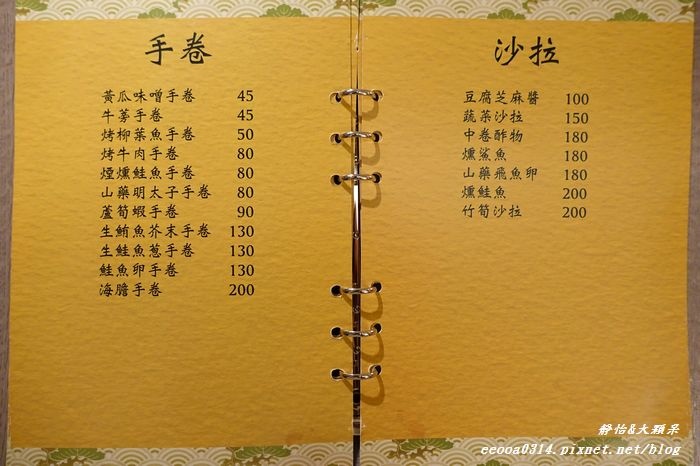 手卷
黃瓜味噌手卷 45
牛蒡手卷 45
烤柳葉魚手卷 50
烤牛肉手卷 80
煙燻鮭魚手卷 80
山藥明太子手卷 80
蘆筍蝦手卷 90
生鮪魚芥末手卷 130
生鮭魚蔥手卷 130
鮭魚卵手卷 130
海膽手卷 200
沙拉
豆腐芝麻醬 100
蔬菜沙拉 150
中卷酢物 180
燻鯊魚 180
山藥飛魚卵 180
燻鮭魚 200
竹筍沙拉 200
靜怡&大顆呆
eeooa0314.pixnet.net/blog